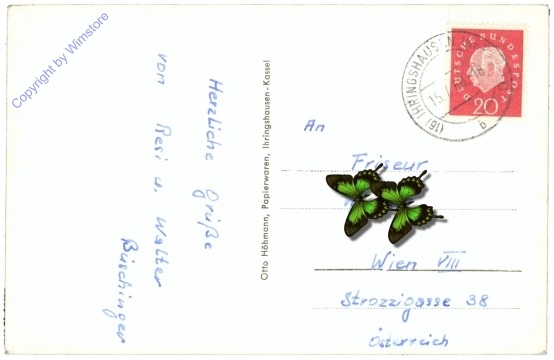 Copyright by Wimstore
Herzliche Grüße
von Resi u. Walter
Büschinger
Otto Höhmann, Papierwaren, Ihringshausen-Kassel
(16) IHRINGSHAUSEN
b
DEUTSCHE BUNDESPOST
20
An
Friseur
Wien VIII
Strozzigasse 38
Österreich